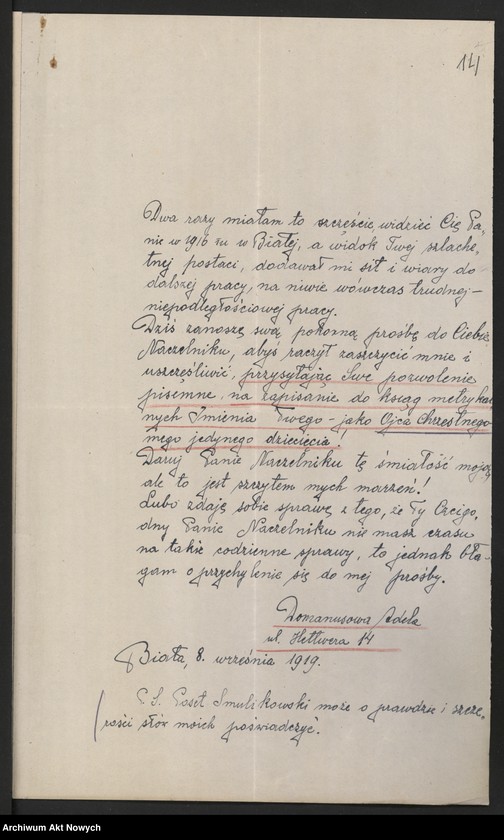 141
Dwa razy miałam to szczęście widzieć Cię Pa,
nie w 1916 ru w Białej, a widok Twej szlache,
tnej postaci, dodawał mi sił i wiary do
dalszej pracy, na niwie wówczas trudnej -
niepodległościowej pracy.
Dziś zanoszę swą pokorną prośbę do Ciebie
Naczelniku, abyś raczył zaszczycić mnie i
uszczęśliwić, przysyłając Swe pozwolenie
pisemne, na zapisanie do ksiąg metrykal
nych Imienia Twego - jako Ojca Chrzestnego
mego jedynego dziecięcia!
Daruj Panie Naczelniku tę śmiałość moją,
ale to jest szczytem mych marzeń!
Lubo zdaję sobie sprawę z tego, że Ty Czcigo,
dny Panie Naczelniku nie masz czasu
na takie codzienne sprawy, to jednak bła-
gam o przychylenie się do mej prośby.
Domanusowa Adela
ul. Hettwera 14
Biała, 8. września 1919.
P. S. Poseł Smulikowski może o prawdzie i szcze,
rości słów moich poświadczyć.
Archiwum Akt Nowych